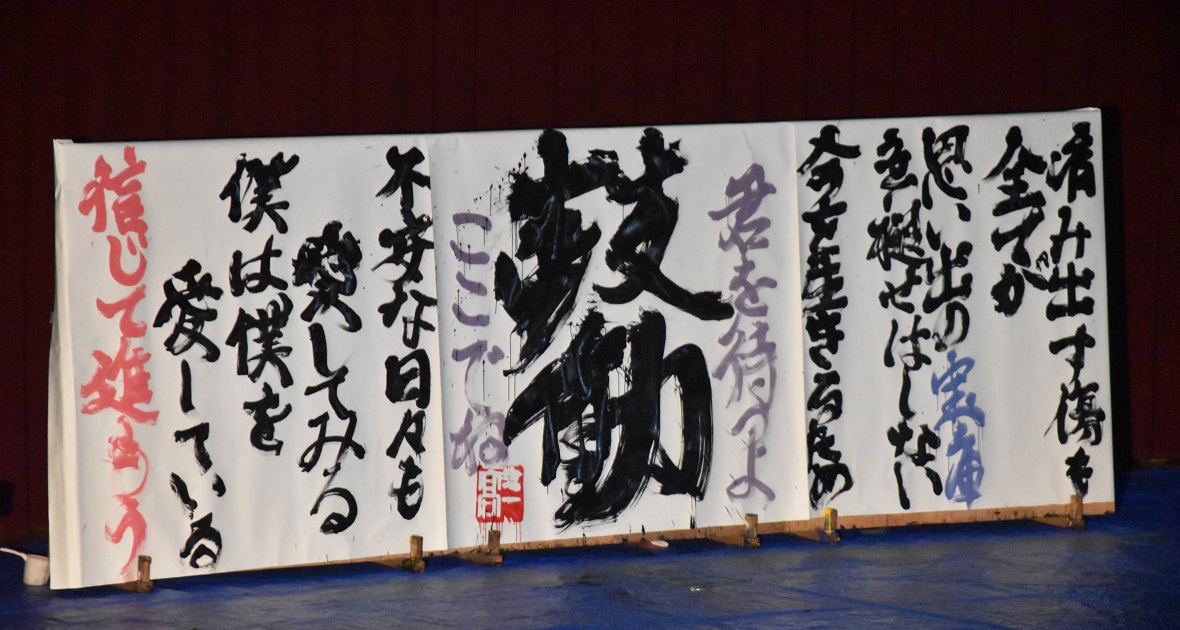 み出す傷も
全てが
思い出の宝庫
色褪せはしない
今を生きるため
君を待つよ
鼓動
ここでね
高
不安な日々も
愛してみる
僕は僕を
愛している
信じて進もう